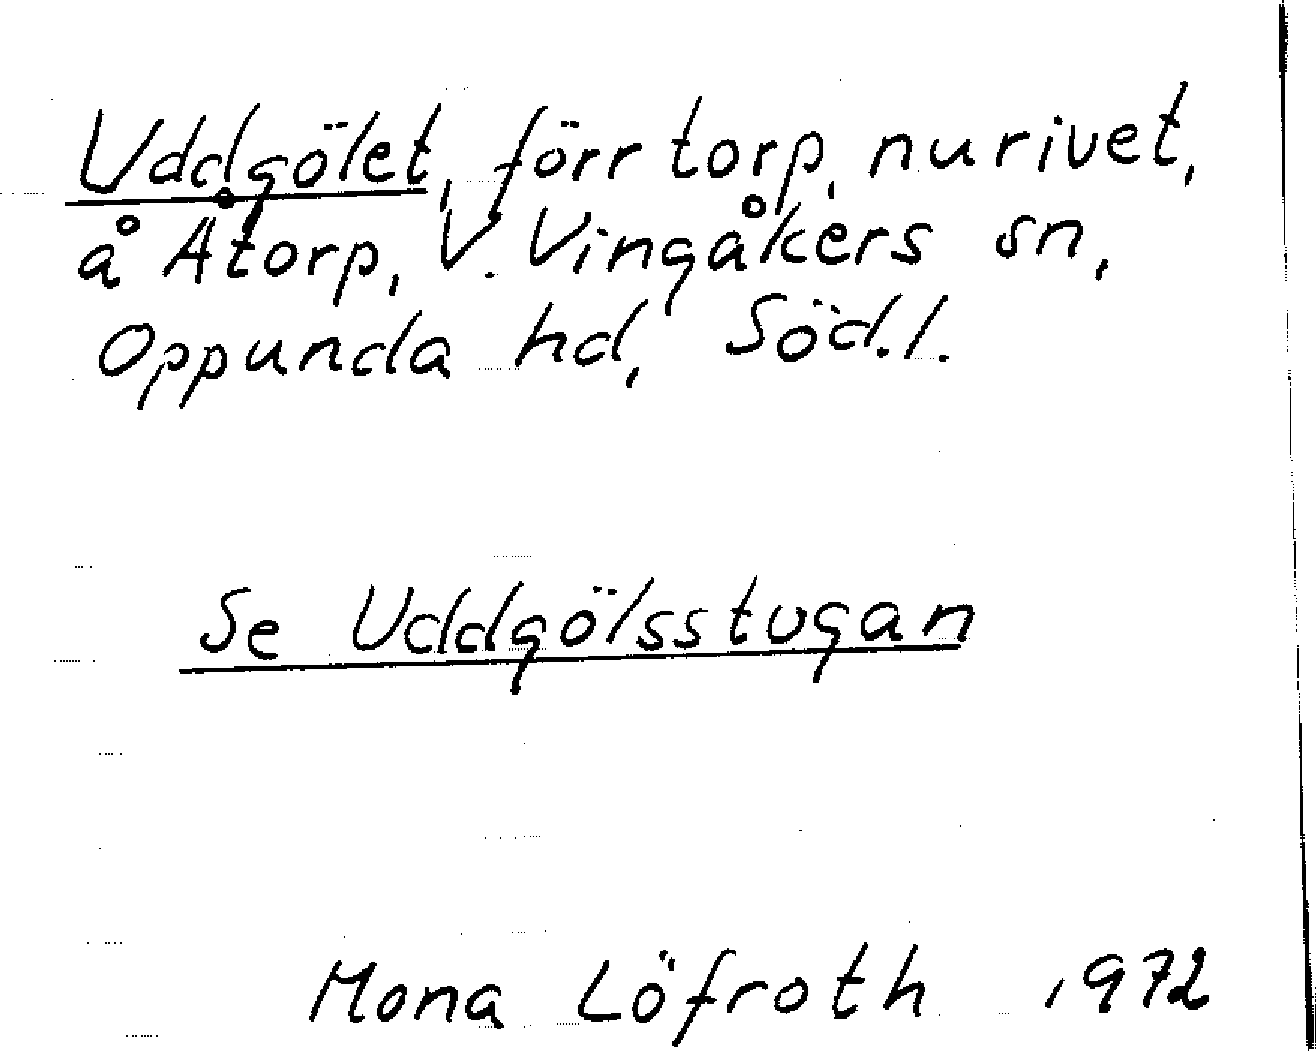 Uddgölet, förr torp, nu rivet,
å Åtorp, V. Vingåkers sn,
Oppunda hd, Söd.l.
Se Uddgölsstugan
Mona Löfroth 1972